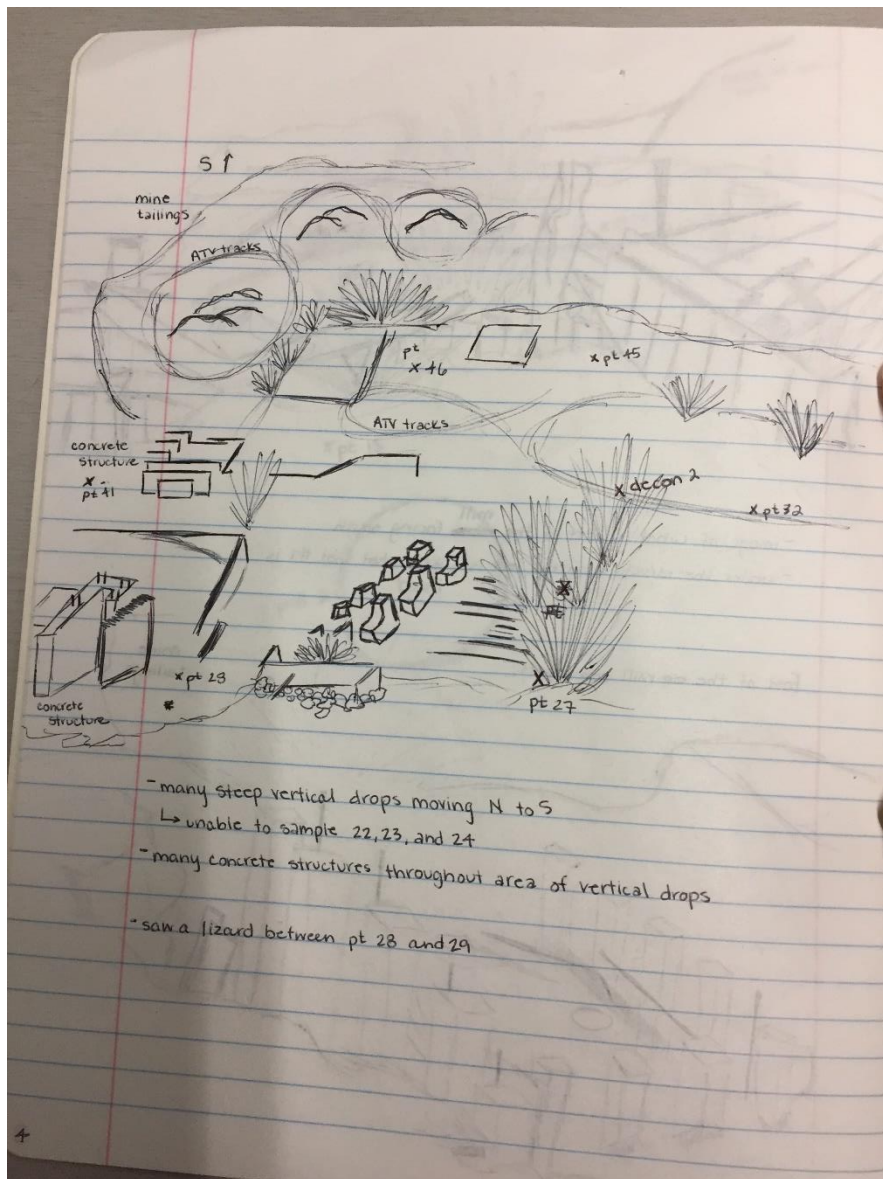 S ↑
mine
tailings
ATV tracks
pt
x 46
x pt 45
ATV tracks
concrete
structure
x
pt 41
x decon 2
x pt 32
x
pt
x pt 28
x
pt 27
concrete
structure
- many steep vertical drops moving N to S
↳ unable to sample 22, 23, and 24
- many concrete structures throughout area of vertical drops
- saw a lizard between pt 28 and 29
4